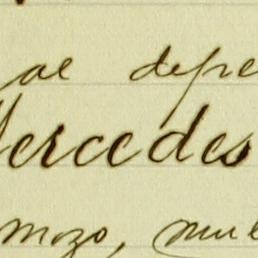 al depre
Mercedes
Mozo, mul